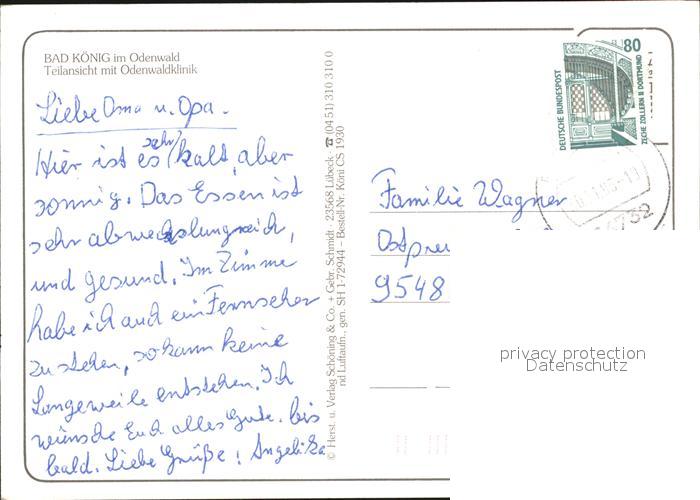 BAD KÖNIG im Odenwald
Teilansicht mit Odenwaldklinik
Liebe Oma u. Opa.
Hier ist es sehr kalt, aber
sonnig. Das Essen ist
sehr abwechslungreich,
und gesund. Im Zimmer
habe ich auch ein Fernseher
zu stehen, so kann keine
Langeweile entstehen. Ich
wünsche Euch alles Gute. bis
bald. Liebe Grüße! Angelika
© Herst. u. Verlag Schöning & Co. + Gebr. Schmidt · 23568 Lübeck · ☎ (04 51) 310 310 0
nd Luftaufn., gen. SH 1-72944 – Bestell-Nr. Köni CS 1930
80
DEUTSCHE BUNDESPOST
ZECHE ZOLLERN II DORTMUND
Familie Wagner
Ostpreu
9548
privacy protection
Datenschutz